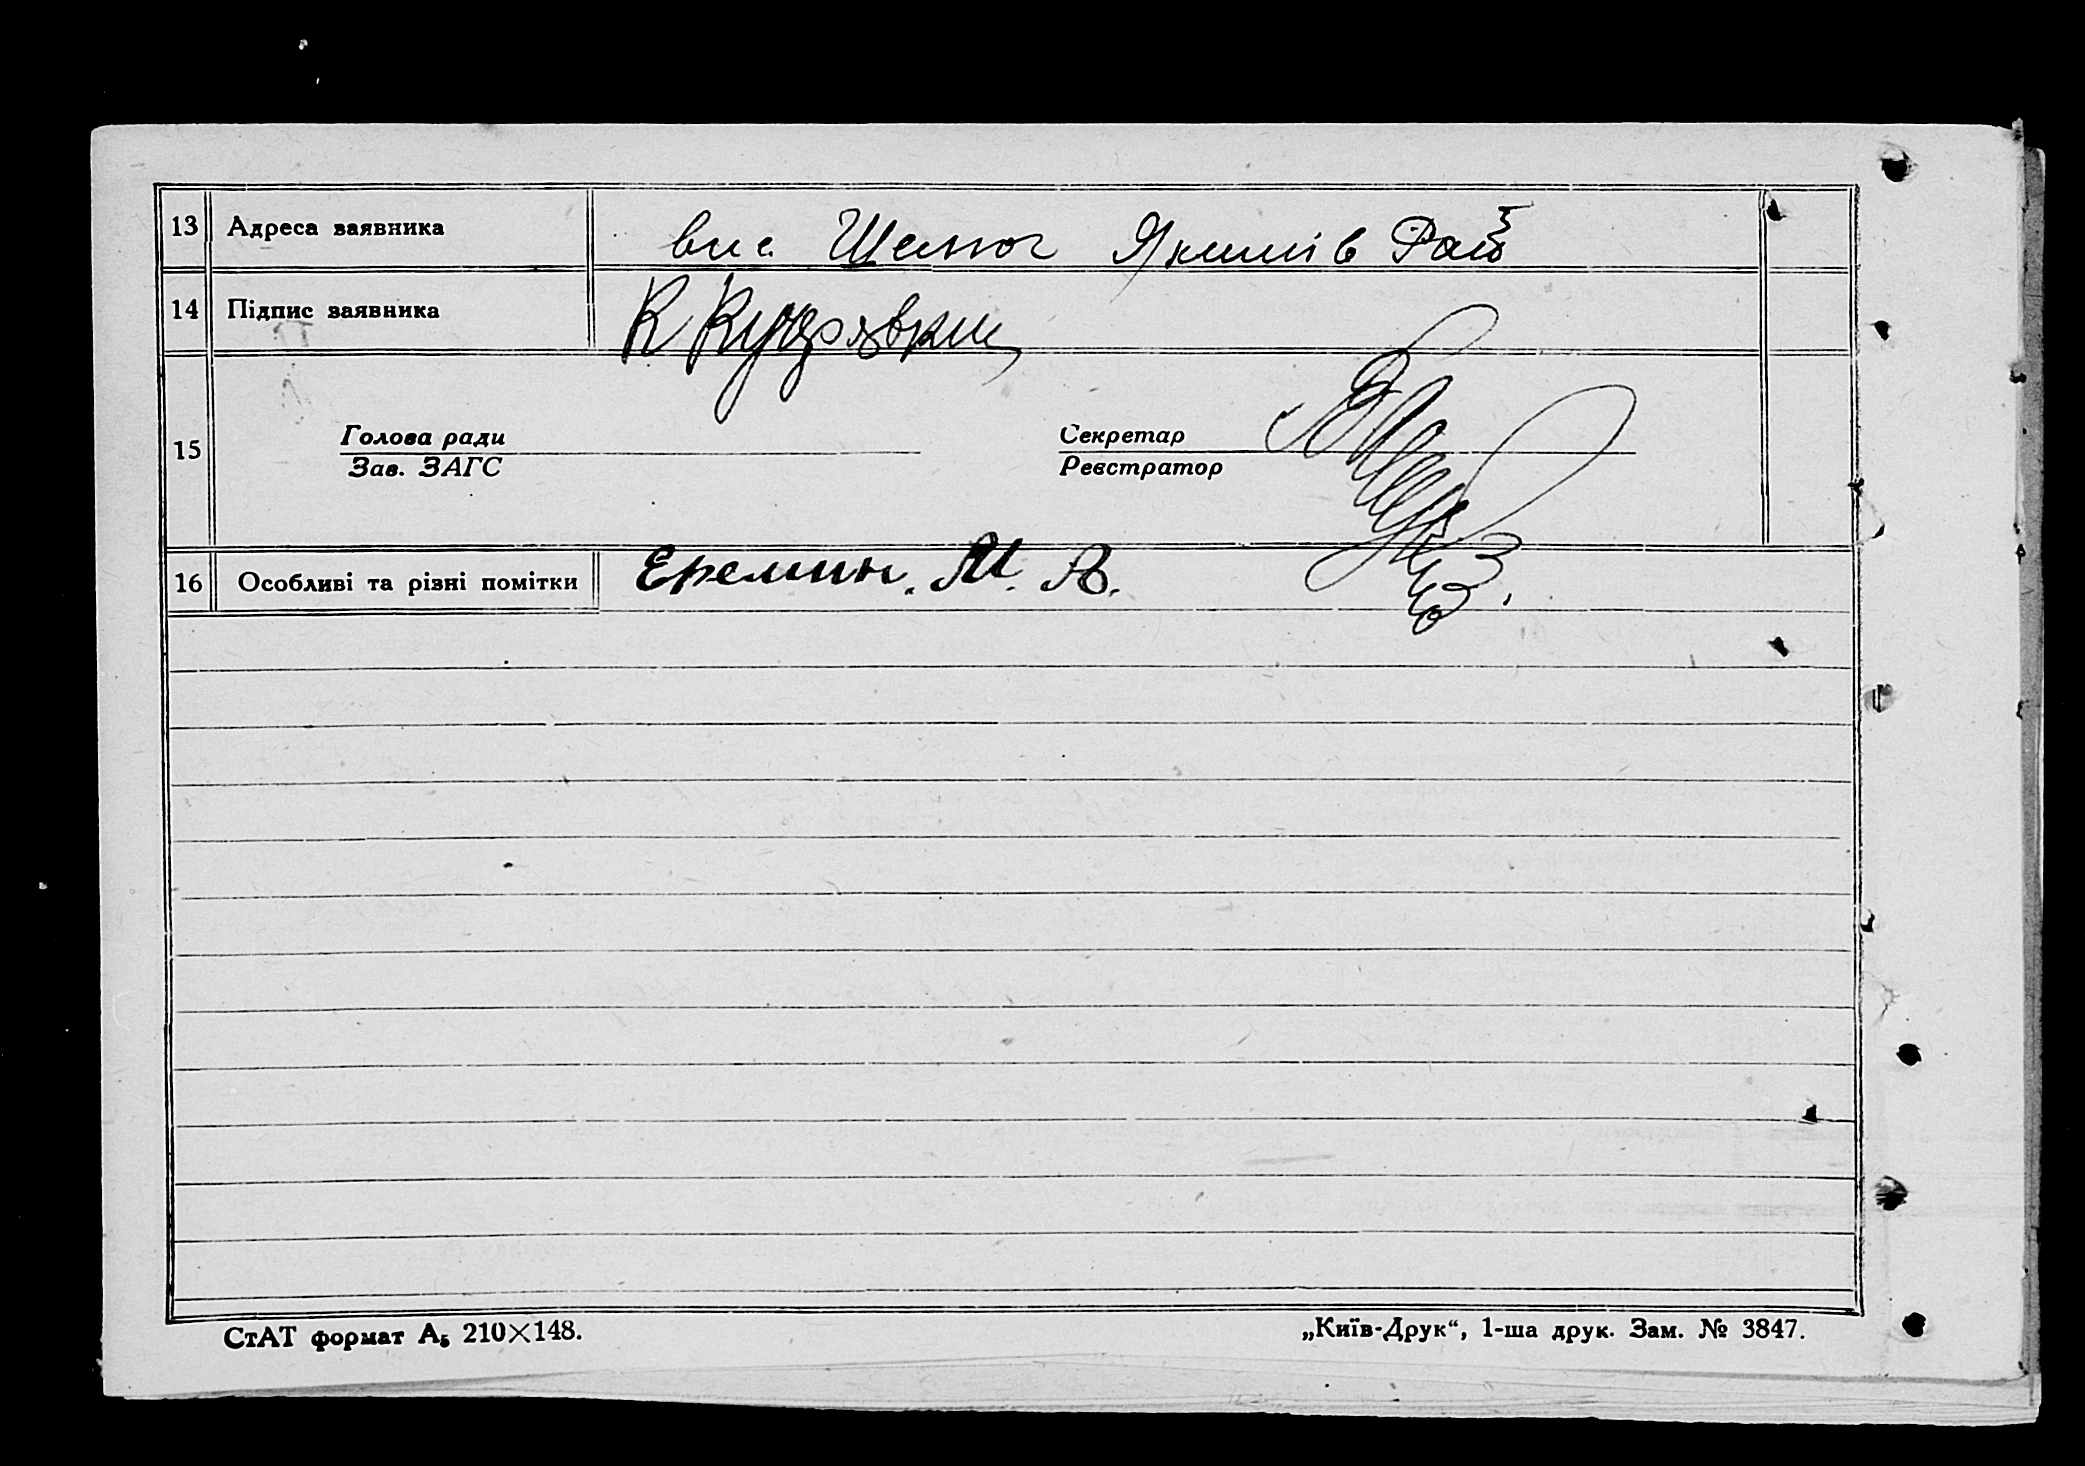 13 Адреса заявника вис. Якимів Рай
14 Підпис заявника К
15 Голова ради Секретар
Зав. ЗАГС Реєстратор
16 Особливі та різні помітки Еремин. М. А.
СтАТ формат А₅ 210×148. „Київ-Друк“, 1-ша друк. Зам. № 3847.